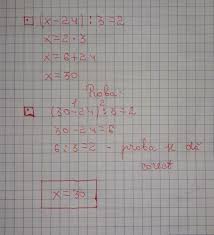 (x-24) : 3=2
x=2·3
x=6+24
x=30
Proba:
1 2
(30-24) : 3=2
30-24=6
6:3=2 - proba se dă
corect
x=30